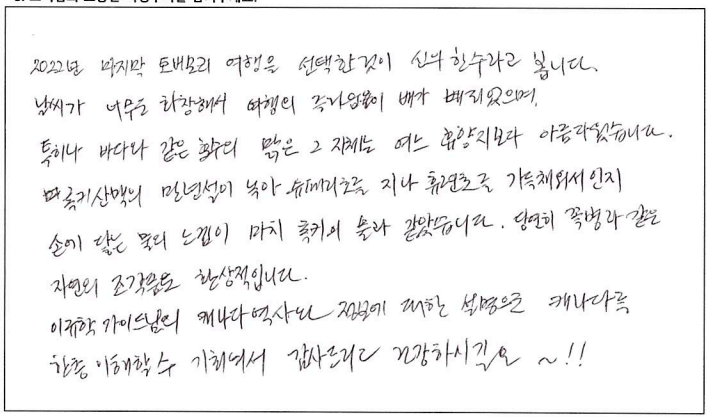 2022년 마지막 토버모리 여행을 선택한것이 신의한수라고 봅니다.
날씨가 너무도 화창해서 여행의 즐거움이 배가 되었으며,
특히나 바다와 같은 호수의 맑은 그 자체는 여느 휴양지보다 아름다웠습니다.
록키산맥의 만년설이 녹아 슈페리호를 지나 휴런호를 가득채워서인지
손에 닿는 물의 느낌이 마치 록키의 물과 같았습니다. 당연히 꽃병과 같은
자연의 조각품도 환상적입니다.
이규학 가이드님의 캐나다 역사와 정보에 대한 설명으로 캐나다를
한층 이해할 수 기회여서 감사드리고 건강하시길요 ~!!